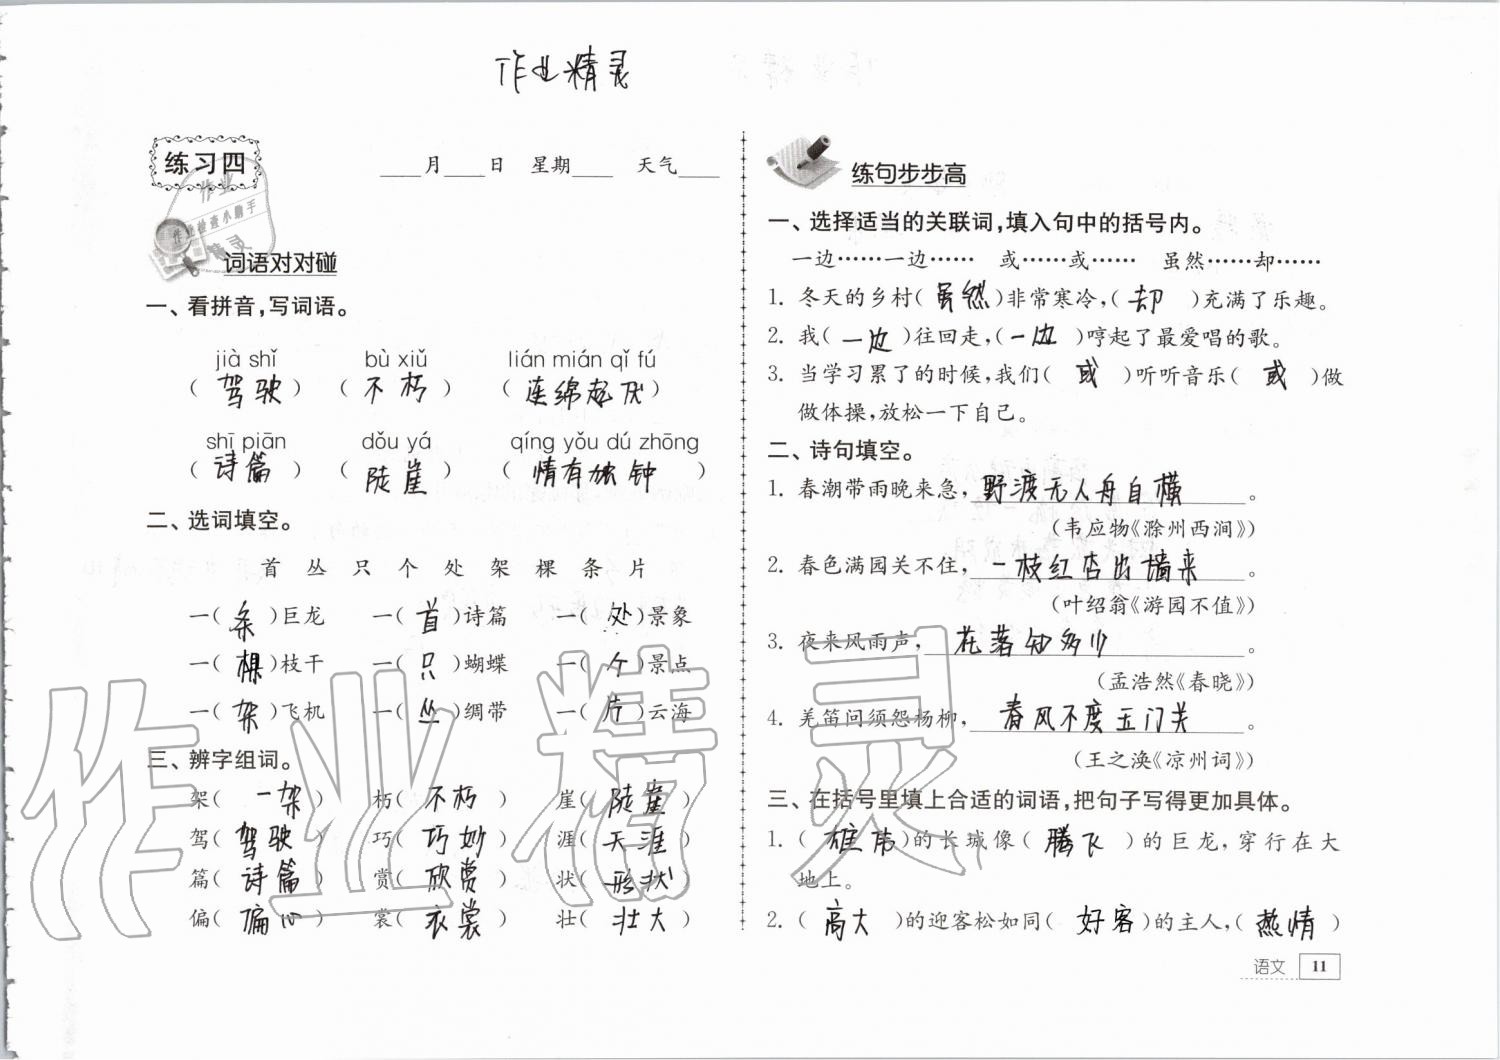 作业精灵
练习四
____月____日 星期____ 天气____
作业
作业检查小助手
精灵
词语对对碰
一、看拼音,写词语。
jià shǐ bù xiǔ lián mián qǐ fú
( 驾驶 ) ( 不朽 ) ( 连绵起伏 )
shī piān dǒu yá qíng yǒu dú zhōng
( 诗篇 ) ( 陡崖 ) ( 情有独钟 )
二、选词填空。
首 丛 只 个 处 架 棵 条 片
一( 条 )巨龙 一( 首 )诗篇 一( 处 )景象
一( 棵 )枝干 一( 只 )蝴蝶 一( 个 )景点
一( 架 )飞机 一( 丛 )绸带 一( 片 )云海
三、辨字组词。
架( 一架 ) 朽( 不朽 ) 崖( 陡崖 )
驾( 驾驶 ) 巧( 巧妙 ) 涯( 天涯 )
篇( 诗篇 ) 赏( 欣赏 ) 状( 形状 )
偏( 偏心 ) 裳( 衣裳 ) 壮( 壮大 )
练句步步高
一、选择适当的关联词,填入句中的括号内。
一边……一边…… 或……或…… 虽然……却……
1. 冬天的乡村( 虽然 )非常寒冷,( 却 )充满了乐趣。
2. 我( 一边 )往回走,( 一边 )哼起了最爱唱的歌。
3. 当学习累了的时候,我们( 或 )听听音乐( 或 )做
做体操,放松一下自己。
二、诗句填空。
1. 春潮带雨晚来急,野渡无人舟自横。
(韦应物《滁州西涧》)
2. 春色满园关不住,一枝红杏出墙来。
(叶绍翁《游园不值》)
3. 夜来风雨声,花落知多少。
(孟浩然《春晓》)
4. 羌笛问须怨杨柳,春风不度玉门关。
(王之涣《凉州词》)
三、在括号里填上合适的词语,把句子写得更加具体。
1. ( 雄伟 )的长城像( 腾飞 )的巨龙,穿行在大
地上。
2. ( 高大 )的迎客松如同( 好客 )的主人,( 热情 )
语文 11
作业精灵